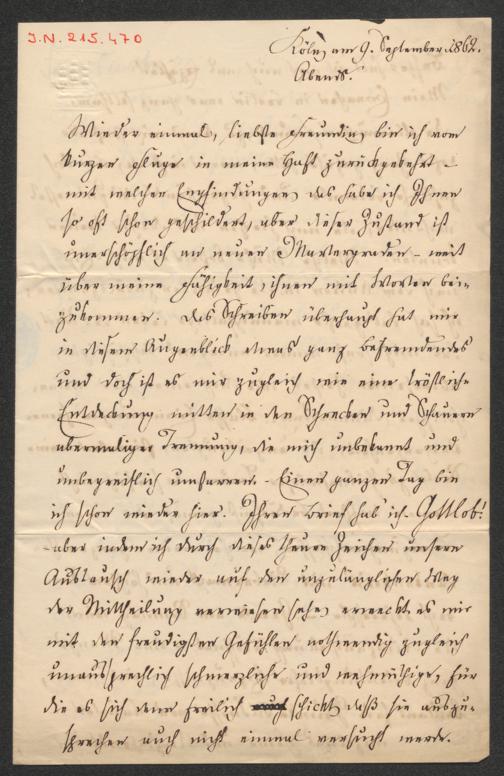 I.N. 215.470
Köln, am 9. September 1862.
Abends.
Wieder einmal, liebste Freundin, bin ich vom
kurzen Fluge in meine Haft zurückgekehrt –
mit welchen Empfindungen, das habe ich Ihnen
so oft schon geschildert, aber dieser Zustand ist
unerschöpflich an neuen Martergraden – weit
über meine Fähigkeit, ihnen mit Worten bei-
zukommen. Das Schreiben überhaupt hat mir
in diesem Augenblick etwas ganz befremdendes
und doch ist es mir zugleich wie eine tröstliche
Entdeckung mitten in den Schrecken und Schauern
abermaliger Trennung, die mich unbekannt und
unbegreiflich umstarren. – Einen ganzen Tag bin
ich schon wieder hier. Ihren Brief hab' ich – Gottlob!
– aber indem ich durch dieses theure Zeichen unsern
Austausch wieder auf den unzulänglichen Weg
der Mittheilung verwiesen sehe, erweckt es mir
mit den freudigsten Gefühlen nothwendig zugleich
unaussprechlich schmerzliche und wehmüthige, für
die es sich denn freilich schickt, daß sie auszu-
sprechen auch nicht einmal versucht werde.